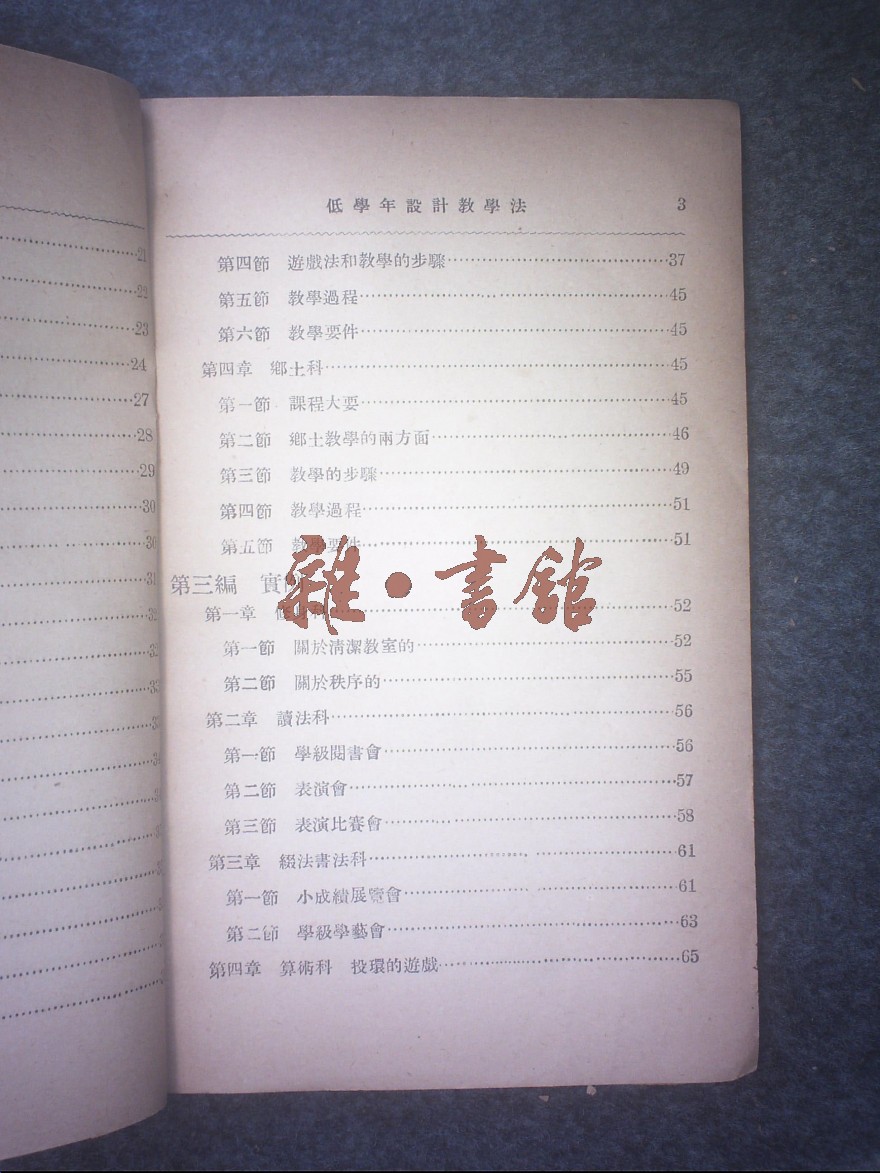 21
22
23
24
27
28
29
30
30
31
低學年設計教學法 3
第四節 遊戲法和教學的步驟 37
第五節 教學過程 45
第六節 教學要件 45
第四章 鄉土科 45
第一節 課程大要 45
第二節 鄉土教學的兩方面 46
第三節 教學的步驟 49
第四節 教學過程 51
第五節 教學要件 51
第三編 實例
第一章 修身科 52
第一節 關於清潔教室的 52
第二節 關於秩序的 55
第二章 讀法科 56
第一節 學級閱書會 56
第二節 表演會 57
第三節 表演比賽會 58
第三章 綴法書法科 61
第一節 小成績展覽會 61
第二節 學級學藝會 63
第四章 算術科 投環的遊戲 65
雜•書館